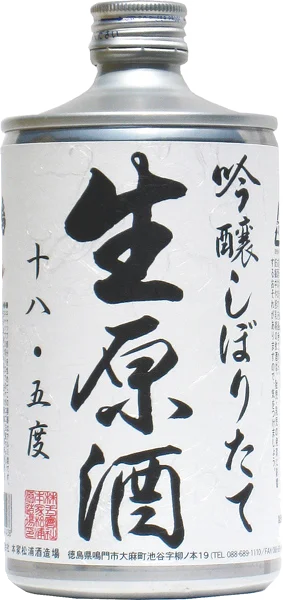 吟醸しぼりたて
生原酒
十八・五度
本家松浦酒造場 徳島県鳴門市大麻町池谷字柳ノ本19 (TEL) 088-689-1110